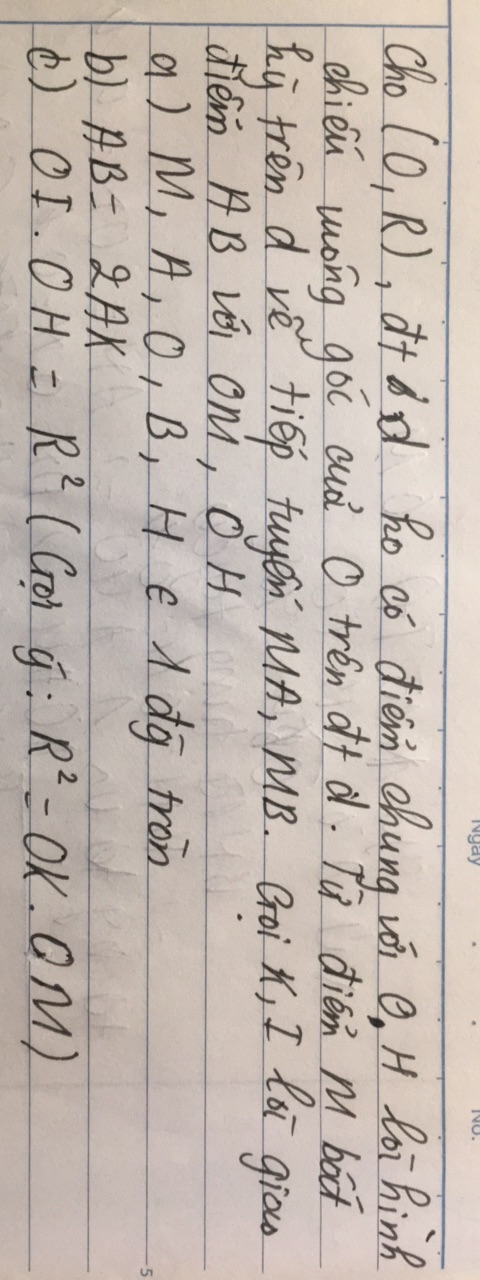 Cho (O, R), đt d ko có điểm chung với O, H là hình
chiếu vuông góc cuả O trên đt d. Từ điểm M bất
kỳ trên d vẽ tiếp tuyến MA, MB. Gọi K, I là giao
điểm AB với OM, OH
a) M, A, O, B, H ∈ 1 đg tròn
b) AB = 2AK
c) OI. OH = R² (Gợi ý: R² = OK. OM)
Ngày
No.
5